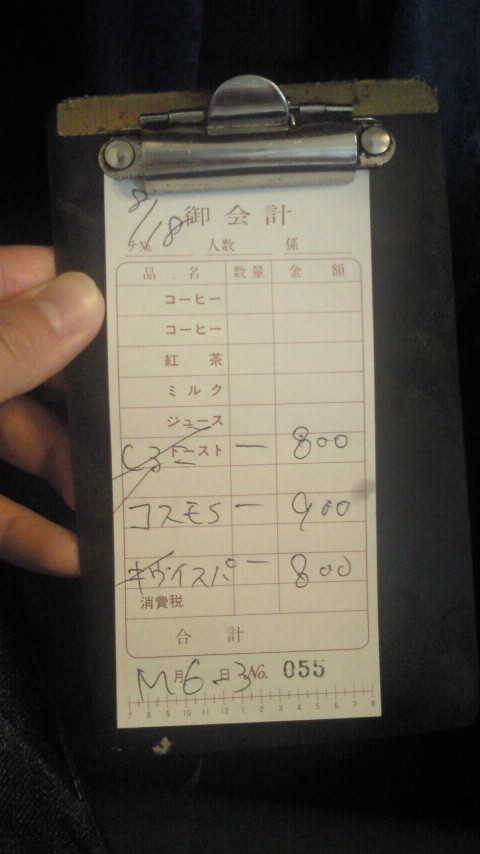 8/18
御会計
テNo. 人数 係
品名 数量 金額
コーヒー
コーヒー
紅茶
ミルク
ジュース
トースト 一 800
コスモS 一 900
キウイスパ 一 800
消費税
合計
M月6日3 No. 055
7 8 9 10 11 12 1 2 3 4 5 6 7 8